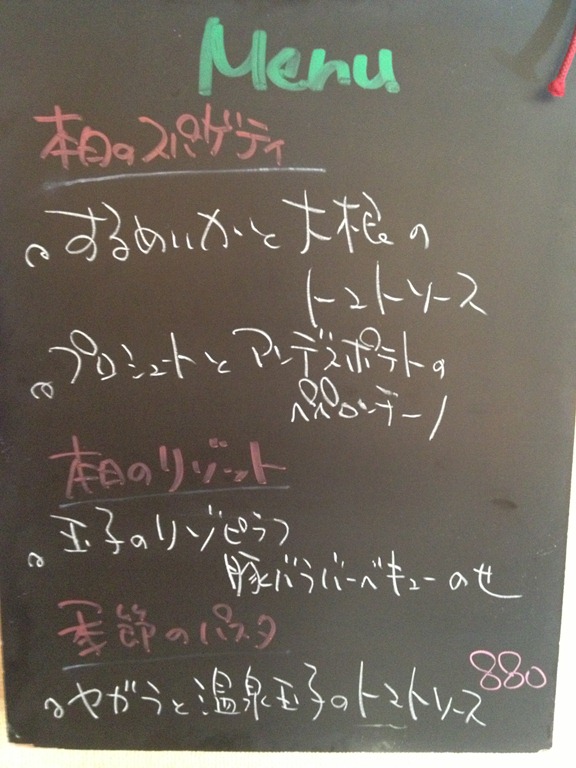 Menu
本日のスパゲティ
するめいかと大根の
トマトソース
プロシュートとアンデスポテトの
ペペロンチーノ
本日のリゾット
玉子のリゾピラフ
豚バラバーベキューのせ
季節のパスタ
880
ヤガラと温泉玉子のトマトソース